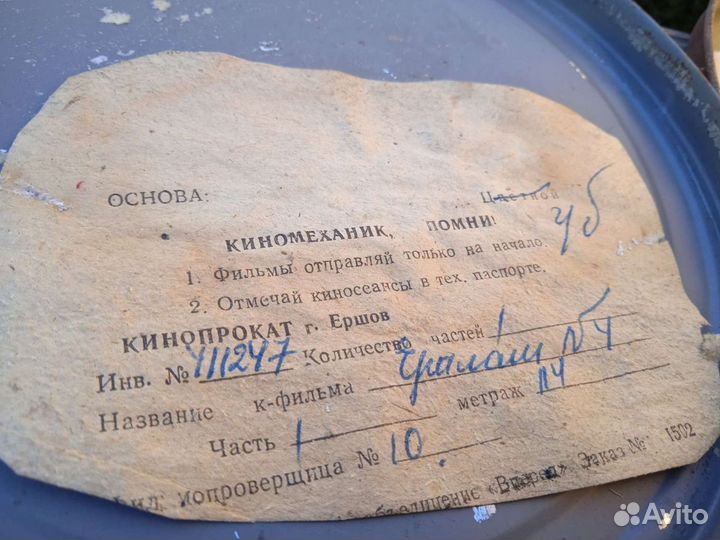 ОСНОВА: Цветной
чб
КИНОМЕХАНИК, ПОМНИ!
1. Фильмы отправляй только на начало.
2. Отмечай киносеансы в тех. паспорте.
КИНОПРОКАТ г. Ершов
Инв. № 411247 Количество частей 1
Название к-фильма Ералаш №4
Часть 1 метраж
Фильмопроверщица № 10.
«Вперед» Заказ № 1502
Avito